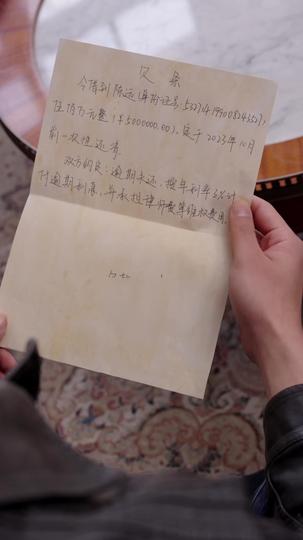 欠条
今借到陈远(身份证号:532
伍佰万元整(¥5000000.00),定于2023年10月
前一次性还清。
双方约定:逾期未还,按年利率3%计
付逾期利息,并承担律师费等维权费用。